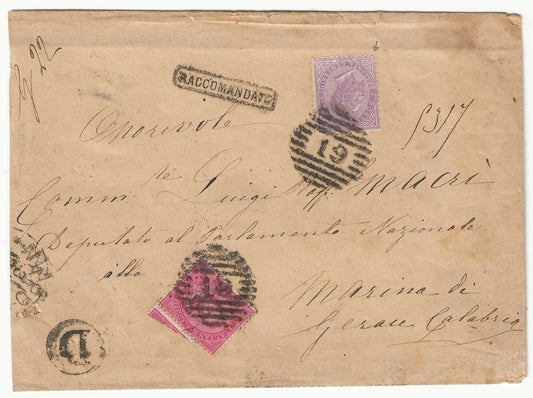 g 22
RACCOMANDATE
5317
Onorevole
19
Comm. re Luigi Macrì
Deputato al Parlamento Nazionale
alla
Marina di
Gerace Calabria
D